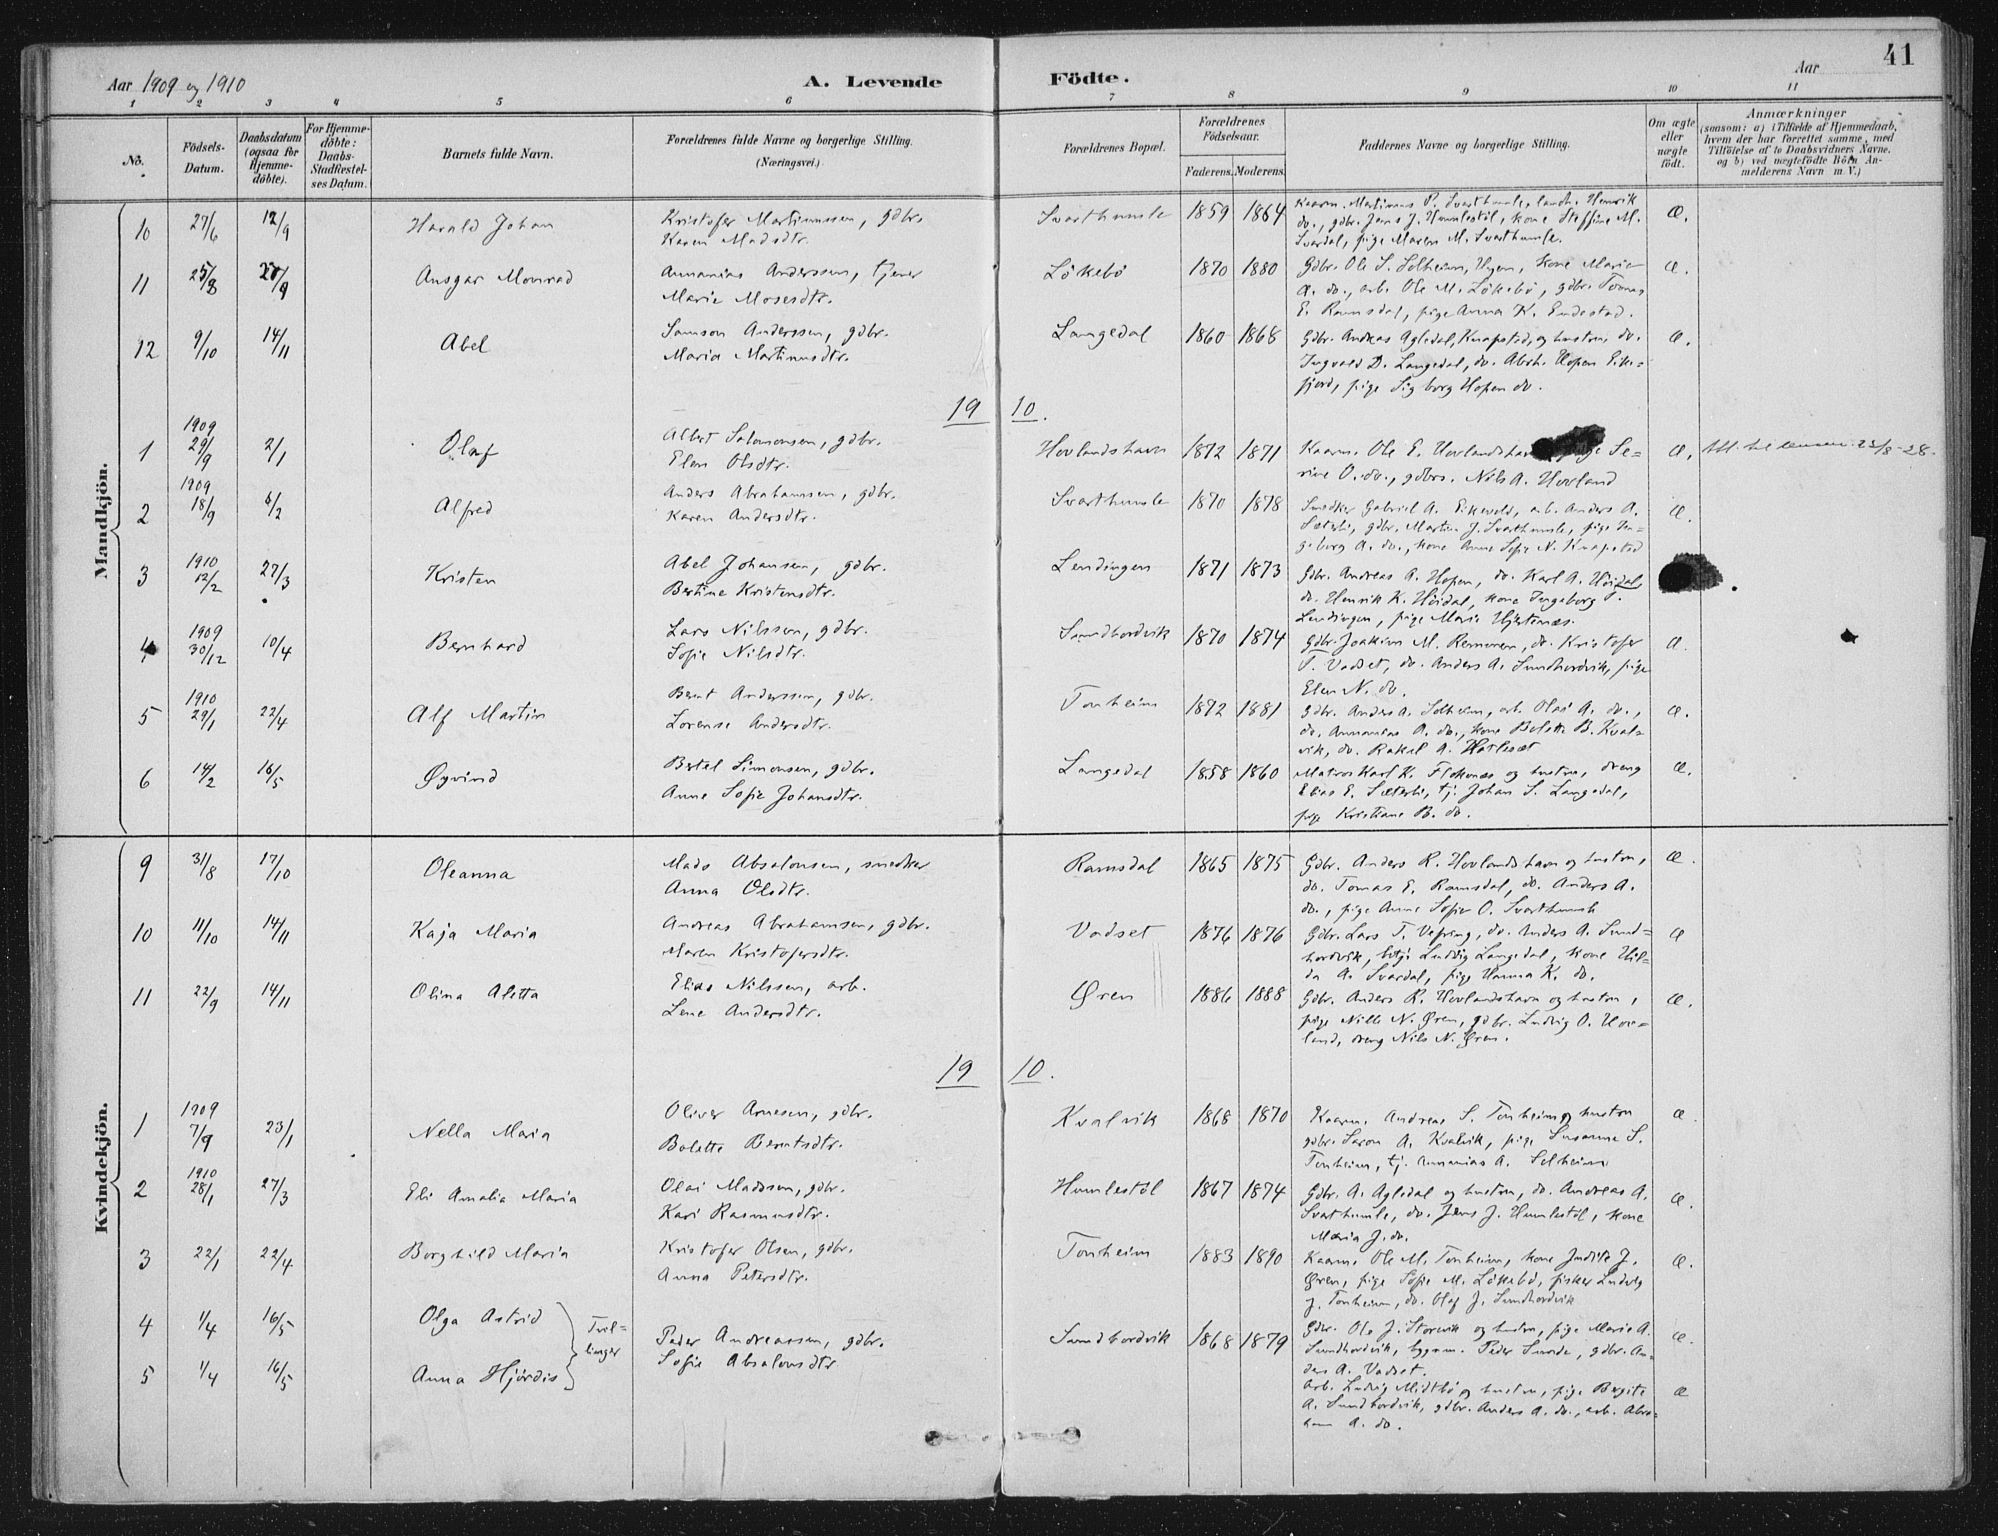 Aar 1909 og 1910
A. Levende Födte.
Aar 41
1 2 3 4 5 6 7 8 9 10 11
No.
Födsels-Datum.
Daabsdatum (ogsaa för Hjemmedöbte).
For Hjemmedöbte: Daabs-Stadfæstelses Datum.
Barnets fulde Navn.
Forældrenes fulde Navne og borgerlige Stilling. (Næringsvei.)
Forældrenes Bopæl.
Forældrenes Födselsaar.
Faderens. Moderens.
Faddernes Navne og borgerlige Stilling.
Om ægte eller uægte födt.
Anmærkninger
(saasom: a) i Tilfælde af Hjemmedaab, hvem der har forrettet samme, med Tilföielse af to Daabsvidners Navne, og b) ved uægtefödte Börn Anmelderens Navn m. V.)
Mandkjön.
10 27/6 12/9 Harald Johan Kristofer Martinussen, gdbr. Svarthumle 1859 1864 Kaarm. Martinus P. Svarthumle, landh. Henrik Æ.
Karen Madsdtr. do., gdbr. Jens J. Humlestöl, kone Steffine M.
Svardal, pige Maren M. Svarthumle.
11 25/8 20/9 Ansgar Monrad Annanias Anderssen, tjener Lökebö 1870 1880 Gdbr. Ole S. Solheim, Hyen, kone Marie Æ.
Marie Mosesdtr. A. do., arb. Ole M. Lökebö, gdbr. Tomas
E. Ramsdal, pige Anna K. Endestad.
12 9/10 14/11 Abel Samson Anderssen, gdbr. Langedal 1860 1868 Gdbr. Andreas Agledal, Knapstad, og hustru, do. Æ.
Maria Martinusdtr. Ingvald D. Langedal, do. Abrh. Hopen Eike=
fjord, pige Sigborg Hopen do.
19 10.
1 1909 29/9 2/1 Olaf Albert Salomonsen, gdbr. Hovlandshavn 1872 1871 Kaarm. Ole E. Hovlandshavn, pige Se= Æ.
Elen Olsdtr. rine O. do., gdbrs. Nils A. Hovland
2 1909 18/9 6/2 Alfred Anders Abrahamsen, gdbr. Svarthumle 1870 1878 Smedker Gabriel A. Eikevold, arb. Anders A. Æ.
Karen Andersdtr. Sæterli, gdbr. Martin J. Svarthumle, pige In=
geborg A. do., kone Anne Sofie N. Knapstad
3 1910 12/2 27/3 Kristen Abel Johansen, gdbr. Lendingen 1871 1873 Gdbr. Andreas A. Hopen, do. Karl A. Höidal,
Bertine Kristensdtr. do. Henrik K. Höidal, kone Ingeborg T.
Lendingen, pige Maria Hjertenæs.
4 1909 30/12 10/4 Bernhard Lars Nilssen, gdbr. Sundhordvik 1870 1874 Gdbr. Joakim M. Remmem, do. Kristofer Æ.
Sofie Nilsdtr. T. Vadset, do. Anders A. Sundhordvik, pige
Elen N. do.
5 1910 29/1 22/4 Alf Martin Bernt Anderssen, gdbr. Tonheim 1872 1881 Gdbr. Anders A. Solheim, arb. Olai A. do., Æ.
Lorense Andersdtr. do. Annanias A. do., kone Bolette B. Kval=
vik, do. Rakel A. Hatleset
6 14/2 16/5 Øyvind Bertel Simonsen, gdbr. Langedal 1858 1860 Matros Karl K. Flokenæs og hustru, dreng Æ.
Anne Sofie Johansdtr. Elias E. Sæterli, tj. Johan S. Langedal,
pige Kristiane B. do.
Kvindekjön.
9 31/8 17/10 Oleanna Mads Absalonsen, snedker Ramsdal 1865 1875 Gdbr. Anders R. Hovlandshavn og hustru, Æ.
Anna Olsdtr. do. Tomas E. Ramsdal, do. Anders A.
do., pige Anne Sofie O. Svarthumle
10 11/10 14/11 Kaja Maria Andreas Abrahamsen, gdbr. Vadset 1876 1876 Gdbr. Lars T. Vefring, do. Anders A. Sund= Æ
Maren Kristofersdtr. hordvik, Ludvig Langedal, kone Hil=
da A. Svardal, pige Hanna K. do.
11 22/9 14/11 Olina Aletta Elias Nilssen, arb. Øren 1886 1888 Gdbr. Anders R. Hovlandshavn og hustru, Æ.
Lene Andersdtr. pige Nille N. Øren, gdbr. Ludvig O. Hov=
land, dreng Nils N. Øren.
19 10.
1 1909 7/9 23/1 Nella Maria Oliver Arnesen, gdbr. Kvalvik 1868 1870 Kaarm. Andreas S. Tonheim og hustru Æ.
Bolette Berntsdtr. gdbr. Saron A. Kvalvik, pige Susanne S.
Tonheim, tj. Annanias A. Solheim
2 1910 28/1 27/3 Eli Amalia Maria Olai Madssen, gdbr. Humlestöl 1867 1874 Gdbr. A. Agledal og hustru, do. Andreas A. Æ.
Kari Rasmusdtr. Svarthumle, do. Jens J. Humlestöl, kone
Maria J. do.
3 22/1 22/4 Borghild Maria Kristofer Olsen, gdbr. Tonheim 1883 1890 Kaarm. Ole M. Tonheim, kone Judith J. Æ.
Anna Petersdtr. Øren, pige Sofie M. Lökebö, fisker Ludvig
J. Tonheim, do. Olaf J. Sundhordvik
4 1/4 16/5 Olga Astrid Tvil= Peder Andreassen, gdbr. Sundhordvik 1868 1879 Gdbr. Ole J. Storevik og hustru, pige Marie A. Æ.
linger Sofie Absalonsdtr Sundhordvik, Peder Sunde, gdbr. An=
ders A. Vadset.
5 1/4 16/5 Anna Hjördis arb. Ludvig Midtbö og hustru, pige Birgite Æ
A. Sundhordvik, gdbr. Anders A. do., arb. Abra=
ham A. do.